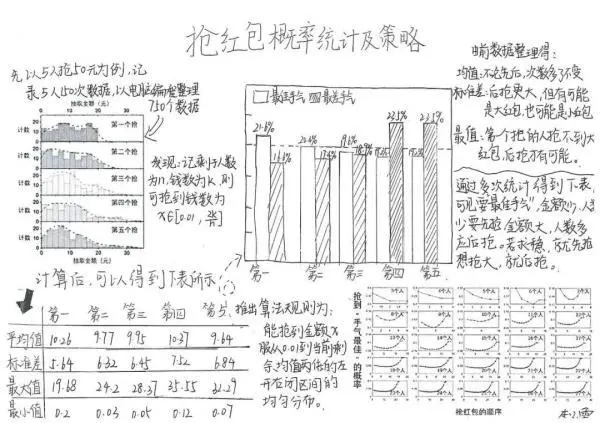 抢红包概率统计及策略
先以5人抢50元为例,记
录5人150次数据,以电脑编程整理
750个数据
抢走金额(元)
0 10 20 30
计数
第一个抢
计数
第二个抢
计数
第三个抢
计数
第四个抢
计数
第五个抢
0 10 20 30
抢走金额(元)
发现:记剩余人数
为n,钱数为k,则
可抢到钱数为
x∈[0.01,
最佳手气 最差手气
21.6%
20.4%
19.6%
18.9%
23.5%
23.5%
第一 第二 第三 第四 第五
由前数据整理得:
均值:不论先后,次数多了不变
标准差:后抢更大,但有可能
是大红包也可能是小红包
最值:第一个抢的人抢不到大
红包,后抢才有可能。
通过多次统计得到下表,
可见要“最佳手气”,金额少,人
少要先抢,金额大,人数多
应后抢。若求稳,就先抢
想抢大,就后抢。
计算后,可以得到下表所示
第一 第二 第三 第四 第五
平均值 10.26 9.77 9.95 10.37 9.64
标准差 5.64 6.32 6.45 7.52 6.84
最大值 19.68 24.2 28.37 35.55 31.29
最小值 0.2 0.03 0.05 0.12 0.07
推出算法规则为:
能抢到金额x
服从0.01到当前剩
余均值两倍的左
开右闭区间的
均匀分布。
抢到“手气最佳”的概率
3个人 4个人 5个人 6个人 7个人
8个人 9个人 10个人 11个人 12个人
13个人 14个人 15个人 16个人 17个人
18个人 19个人 20个人 21个人 22个人
23个人 24个人 25个人 26个人 27个人
抢红包的顺序